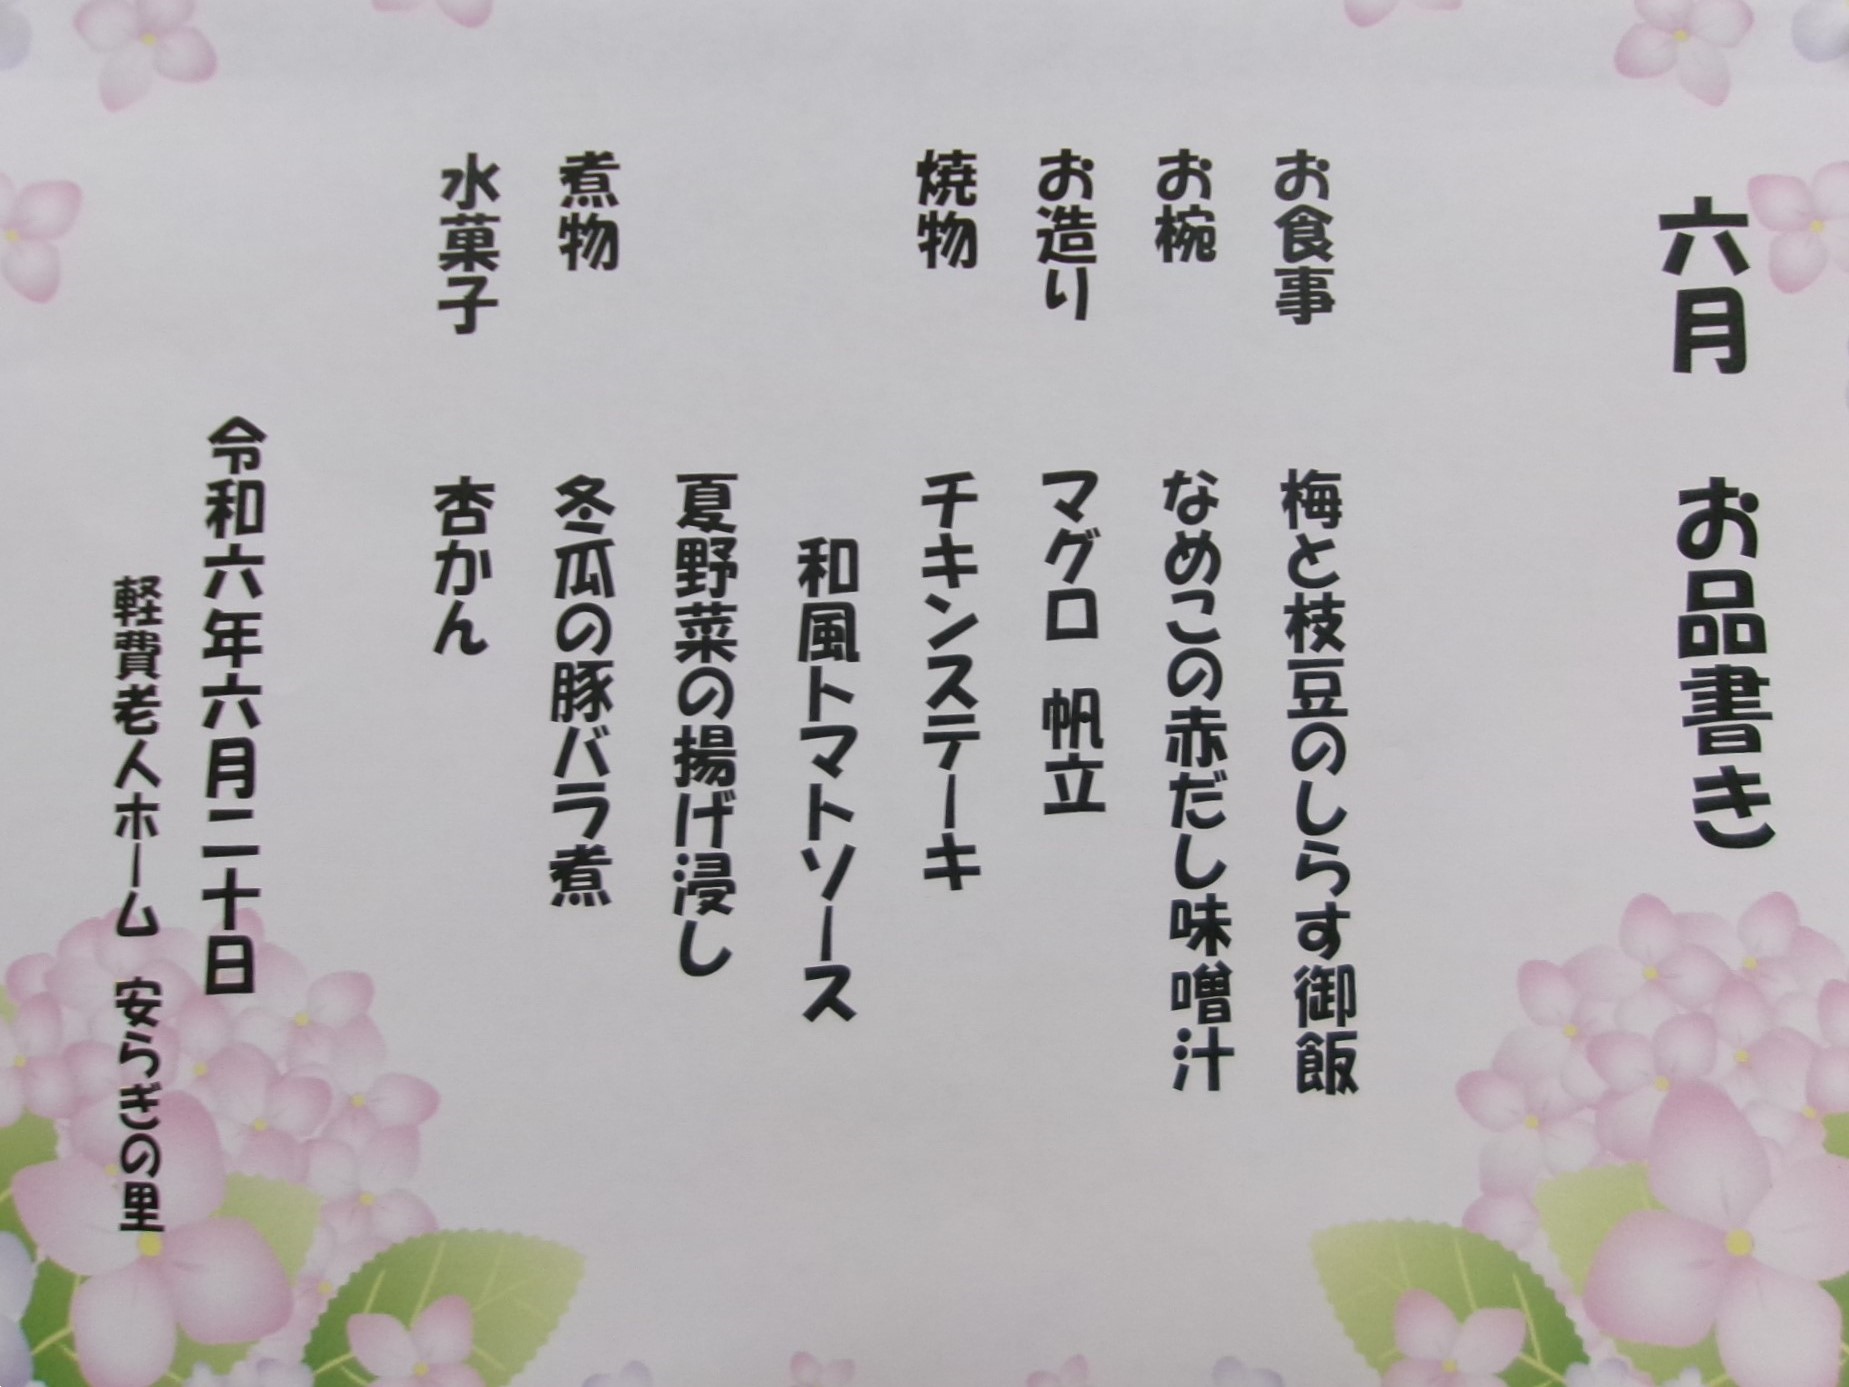 六月　お品書き
お食事　梅と枝豆のしらす御飯
お椀　なめこの赤だし味噌汁
お造り　マグロ　帆立
焼物　チキンステーキ
和風トマトソース
夏野菜の揚げ浸し
煮物　冬瓜の豚バラ煮
水菓子　杏かん
令和六年六月二十日
軽費老人ホーム　安らぎの里